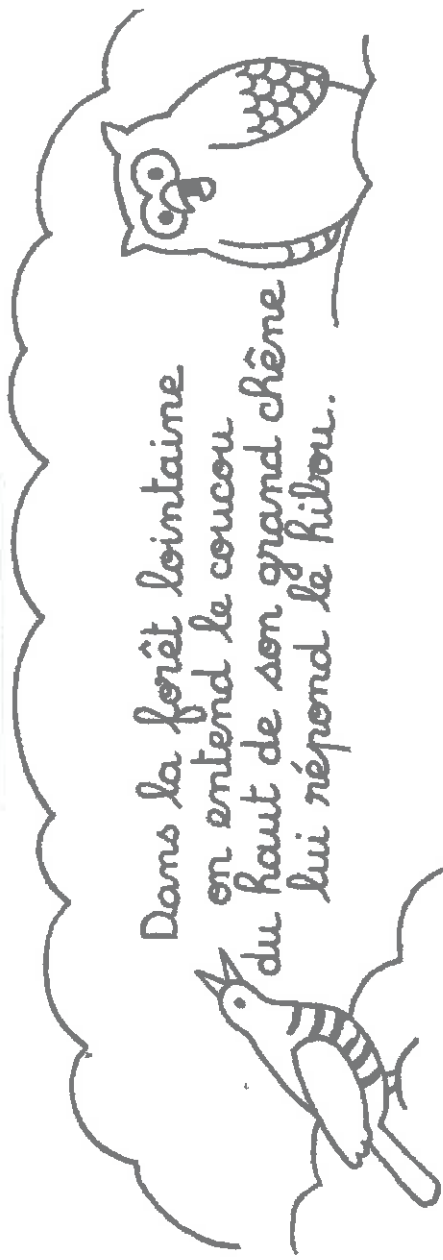 Dans la forêt lointaine
on entend le coucou
du haut de son grand chêne
lui répond le hibou.